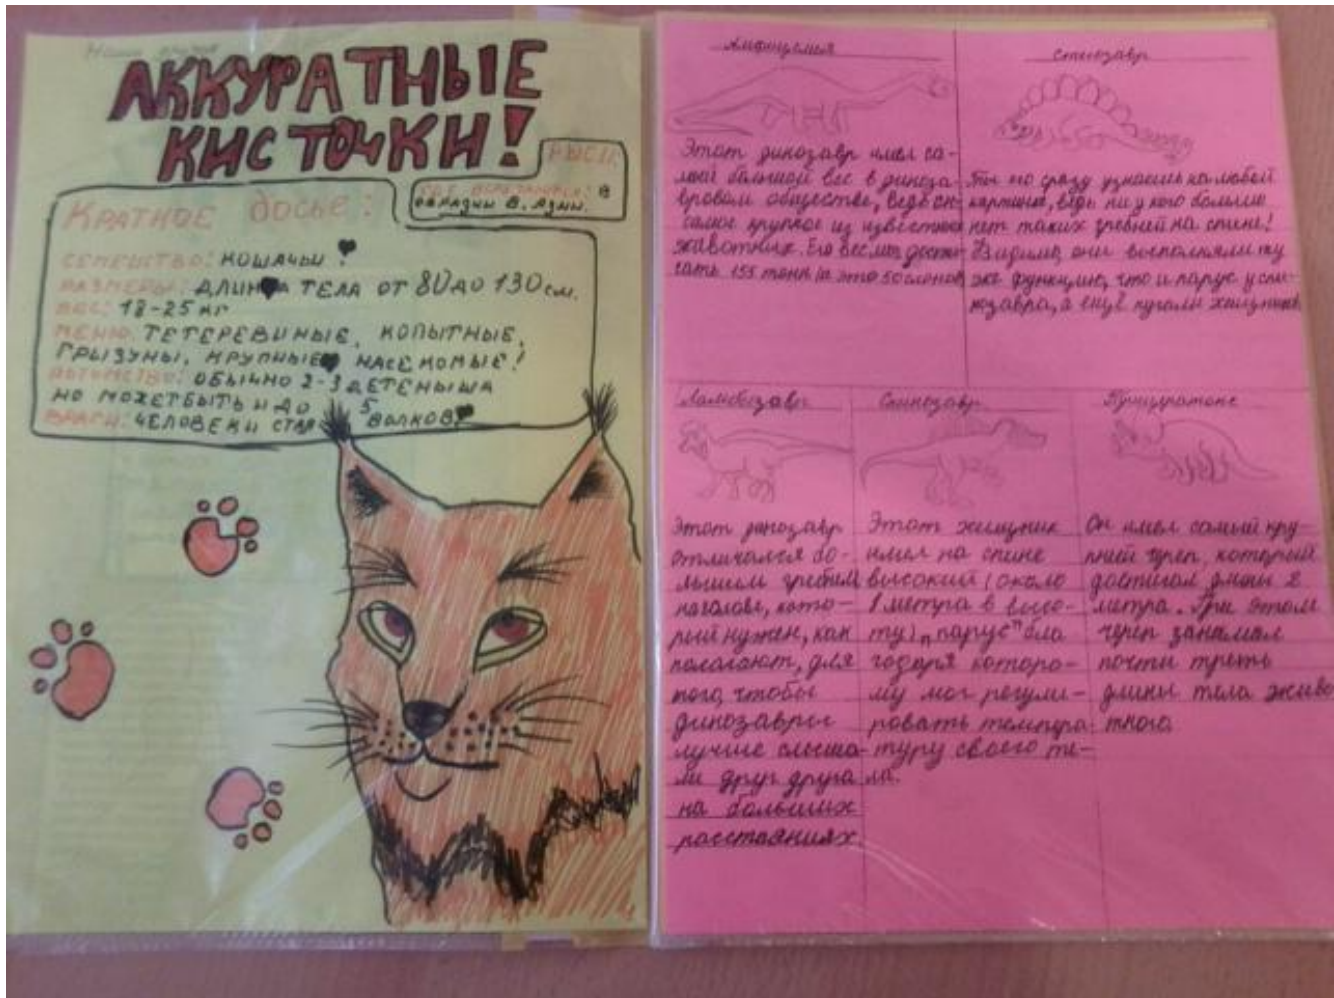 Наши
АККУРАТНЫЕ
КИСТОЧКИ!
РЫСЬ
В
ЕВРАЗИИ В. АЗИИ.
КРАТКОЕ ДОСЬЕ:
СЕМЕЙСТВО: КОШАЧЬИ
РАЗМЕРЫ: ДЛИНА ТЕЛА ОТ 80 ДО 130 см.
ВЕС: 18-25 кг
МЕНЮ: ТЕТЕРЕВИНЫЕ, КОПЫТНЫЕ,
ГРЫЗУНЫ, КРУПНЫЕ НАСЕКОМЫЕ!
ПОТОМСТВО: ОБЫЧНО 2-3 ДЕТЕНЫША
НО МОЖЕТ БЫТЬ И ДО 5
ВРАГИ: ЧЕЛОВЕК И СТАЯ ВОЛКОВ
Амфицелия
Этот динозавр имел са-
мый большой вес в диноза-
вровом обществе, ведь он
самое крупное из известных
животных. Его вес мог дости-
гать 155 тонн (а это 50 слонов
Стегозавр
Ты его сразу узнаешь на любой
картинке, ведь ни у кого больше
нет таких гребней на спине!
Видимо, они выполняли ту
же функцию, что и парус у спи-
нозавра, а ещё пугали хищников
Ламбеозавр
Этот динозавр
отличался бо-
льшим гребнем
на голове, кото-
рый нужен, как
полагают, для
того, чтобы
динозавры
лучше слыша-
ли друг друга
на больших
расстояниях.
Спинозавр
Этот хищник
имел на спине
высокий (около
1 метра в высо-
ту) "парус" бла
годаря которо-
му мог регули-
ровать темпера-
туру своего те-
ла.
Трицератопс
Он имел самый кру-
пный череп, который
достигал длины 2
метра. При этом
череп занимал
почти треть
длины тела живо
тного.